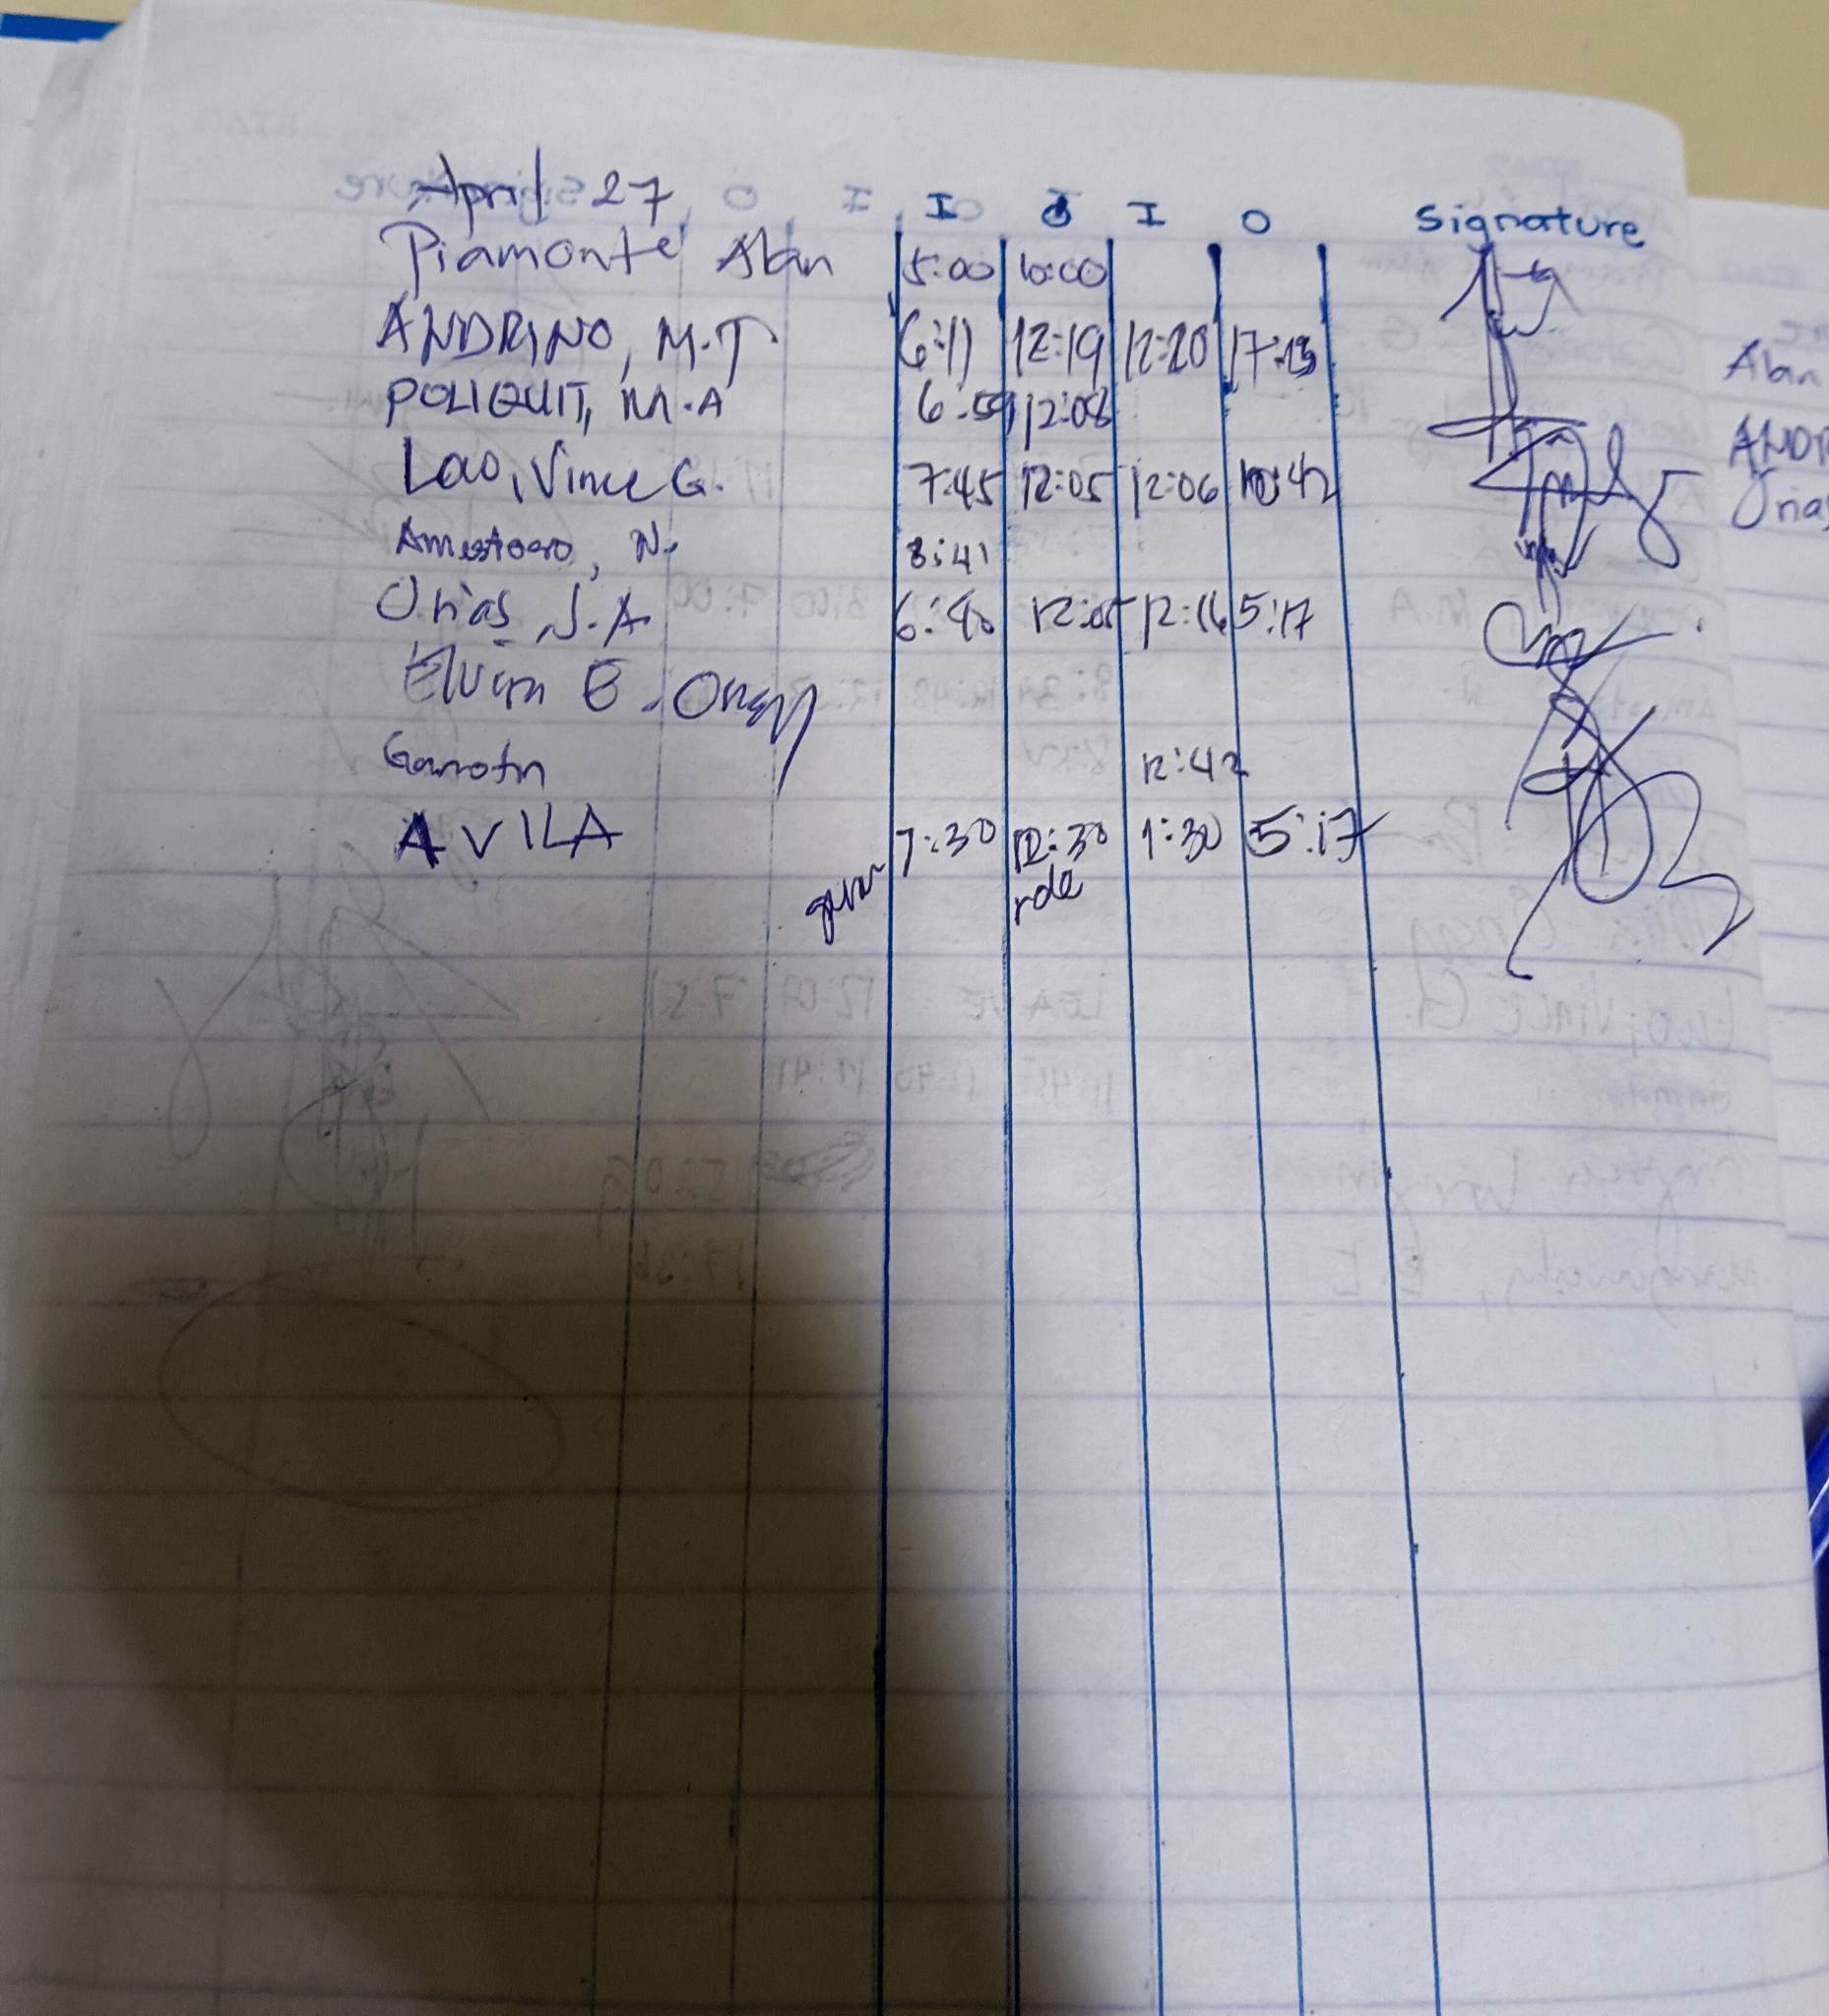 April 27 I O I O Signature
Piamonte Alan 5:00 10:00
ANDRINO, M.T 6:11 12:19 12:20 17:13
POLIQUIT, M.A 6:59 12:08
Lao, Vince G. 7:45 12:05 12:06 10:42
Amestoso, N. 8:41
Orias, J.A 6:40 12:05 12:16 5:17
Elvin E. Ongy
Gamotin 12:42
AVILA 7:30 12:30 1:30 5:17
Alan